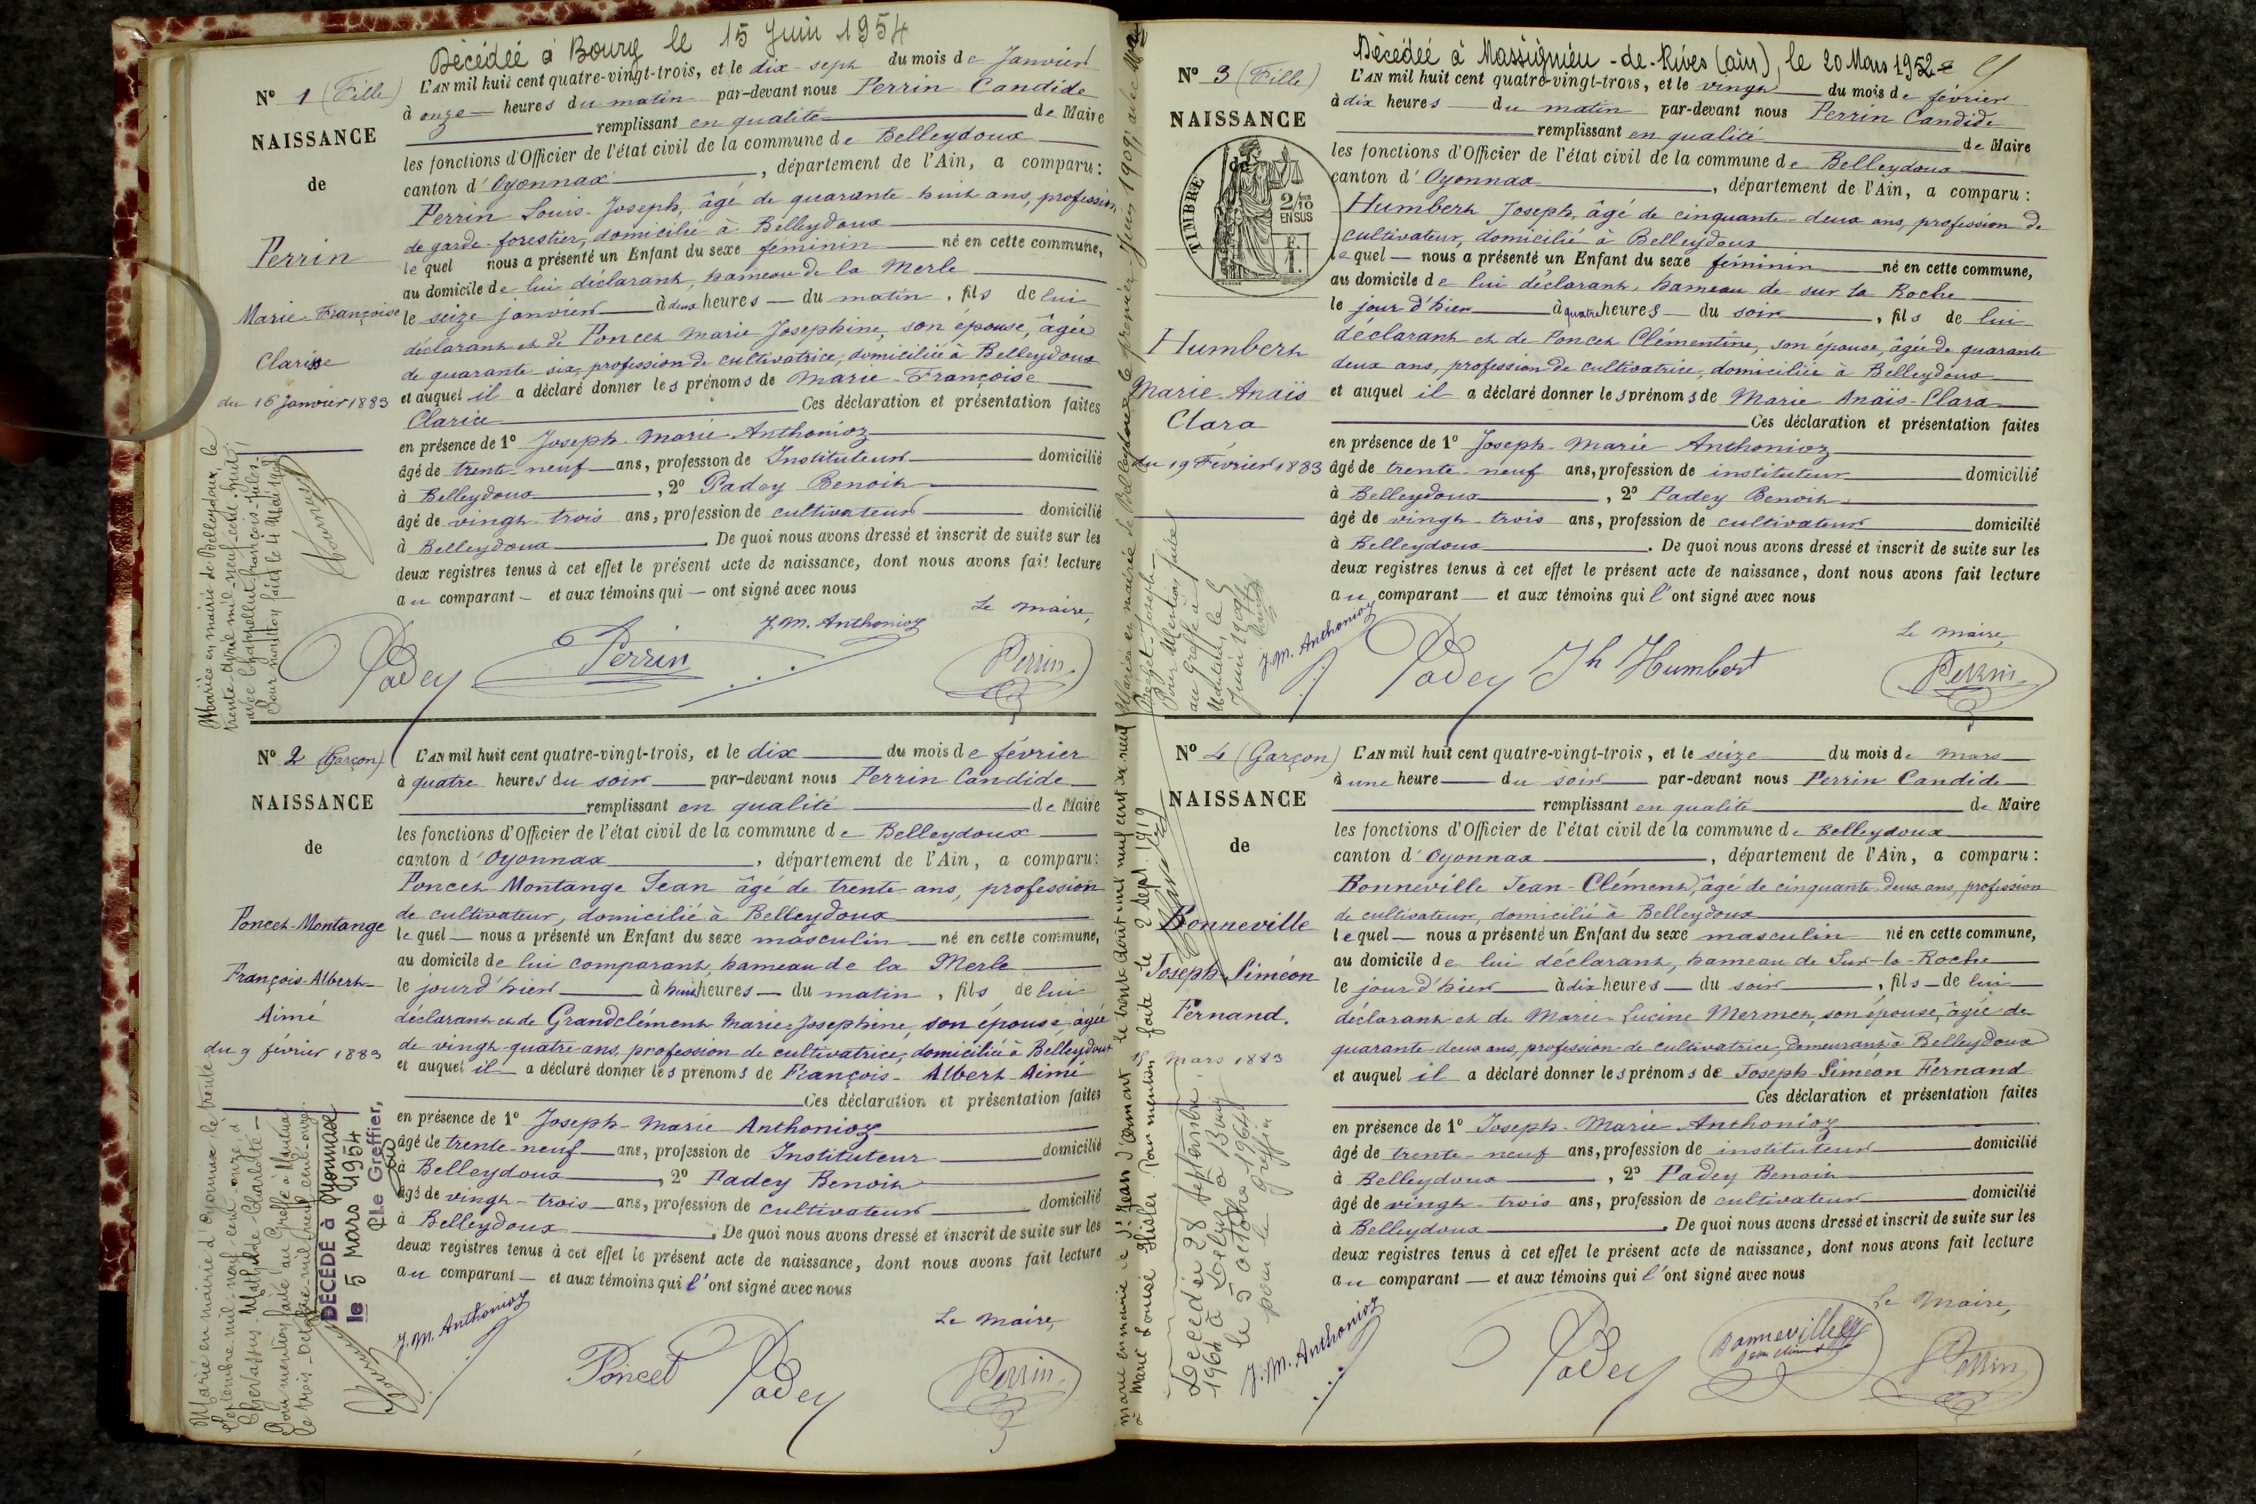 Décédée à Bourg le 15 Juin 1954
N° 1 (Fille)
NAISSANCE
de
Perrin
Marie-Françoise
Clarisse
du 16 janvier 1883
Mariée en mairie de Belleydoux, le
trente avril mil-neuf-cent-huit,
avec Chappellut François-Jules.
Pour mention faite le 4 Mai 1908
L'AN mil huit cent quatre-vingt-trois, et le dix-sept du mois de Janvier
à onze heures du matin par-devant nous Perrin Candide
remplissant en qualité de Maire
les fonctions d'Officier de l'état civil de la commune de Belleydoux
canton d'Oyonnax, département de l'Ain, a comparu:
Perrin Louis-Joseph, âgé de quarante-huit ans, profession
de garde-forestier, domicilié à Belleydoux
lequel nous a présenté un Enfant du sexe féminin né en cette commune,
au domicile de lui déclarant, hameau de la Merle
le seize janvier à deux heures du matin, fils de lui
déclarant et de Poncet Marie Josephine, son épouse, âgée
de quarante-six, profession de cultivatrice, domiciliée à Belleydoux
et auquel il a déclaré donner les prénoms de Marie-Françoise
Clarisse Ces déclaration et présentation faites
en présence de 1° Joseph-Marie Anthonioz
âgé de trente-neuf ans, profession de Instituteur domicilié
à Belleydoux, 2° Padey Benoit
âgé de vingt-trois ans, profession de cultivateur domicilié
à Belleydoux. De quoi nous avons dressé et inscrit de suite sur les
deux registres tenus à cet effet le présent acte de naissance, dont nous avons fait lecture
au comparant et aux témoins qui ont signé avec nous
Le Maire,
Padey Perrin J. M. Anthonioz Perrin
N° 2 (Garçon)
NAISSANCE
de
Poncet-Montange
François-Albert
Aimé
du 9 février 1883
Marié en mairie d'Oyonnax, le trente
septembre mil-neuf-cent-onze, à
Mathilde-Charlotte
Pour mention faite au Greffe à Nantua
le trois-Octobre-mil-neuf-cent-onze.
DÉCÉDÉ à Oyonnax
le 5 Mars 1954
Le Greffier,
L'AN mil huit cent quatre-vingt-trois, et le dix du mois de février
à quatre heures du soir par-devant nous Perrin Candide
remplissant en qualité de Maire
les fonctions d'Officier de l'état civil de la commune de Belleydoux
canton d'Oyonnax, département de l'Ain, a comparu:
Poncet Montange Jean âgé de trente ans, profession
de cultivateur, domicilié à Belleydoux
lequel nous a présenté un Enfant du sexe masculin né en cette commune,
au domicile de lui comparant, hameau de la Merle
le jour d'hier à huit heures du matin, fils de lui
déclarant et de Grandclément Marie-Josephine, son épouse, âgée
de vingt-quatre ans, profession de cultivatrice, domiciliée à Belleydoux
et auquel il a déclaré donner les prénoms de François-Albert-Aimé
Ces déclaration et présentation faites
en présence de 1° Joseph-Marie Anthonioz
âgé de trente-neuf ans, profession de Instituteur domicilié
à Belleydoux, 2° Padey Benoit
âgé de vingt-trois ans, profession de cultivateur domicilié
à Belleydoux. De quoi nous avons dressé et inscrit de suite sur les
deux registres tenus à cet effet le présent acte de naissance, dont nous avons fait lecture
au comparant et aux témoins qui l'ont signé avec nous
Le Maire,
J. M. Anthonioz Poncet Padey Perrin
Décédée à Massignieu-de-Rives (ain), le 20 Mars 1952
N° 3 (Fille)
NAISSANCE
de
TIMBRE
2/10 EN SUS
F. 1.
Humbert
Marie-Anaïs
Clara
du 19 Février 1883
Mariée en mairie de Belleydoux le premier Juin 1909, avec
Joseph
Pour Mention faite
au Greffe à
Nantua, le 5
Juin 1909
L'AN mil huit cent quatre-vingt-trois, et le vingt du mois de février
à dix heures du matin par-devant nous Perrin Candide
remplissant en qualité de Maire
les fonctions d'Officier de l'état civil de la commune de Belleydoux
canton d'Oyonnax, département de l'Ain, a comparu:
Humbert Joseph, âgé de cinquante-deux ans, profession de
cultivateur, domicilié à Belleydoux
lequel nous a présenté un Enfant du sexe féminin né en cette commune,
au domicile de lui déclarant, hameau de sur la Roche
le jour d'hier à quatre heures du soir, fils de lui
déclarant et de Poncet Clémentine, son épouse, âgée de quarante
deux ans, profession de cultivatrice, domiciliée à Belleydoux
et auquel il a déclaré donner les prénoms de Marie Anaïs-Clara
Ces déclaration et présentation faites
en présence de 1° Joseph-Marie Anthonioz
âgé de trente-neuf ans, profession de instituteur domicilié
à Belleydoux, 2° Padey Benoit
âgé de vingt-trois ans, profession de cultivateur domicilié
à Belleydoux. De quoi nous avons dressé et inscrit de suite sur les
deux registres tenus à cet effet le présent acte de naissance, dont nous avons fait lecture
au comparant et aux témoins qui l'ont signé avec nous
Le Maire,
J. M. Anthonioz Padey Jh Humbert Perrin
N° 4 (Garçon)
NAISSANCE
de
Bonneville
Joseph-Siméon
Fernand.
Mars 1883
Marié en mairie de St Jean d'Aumont le trente Août mil neuf cent dix neuf
à Marie Louise Hisler. Pour mention faite le 2 Sept. 1919
Décédé 28 Septembre
1964 à Bourg
le 5 octobre 1964
pour le Greffier
L'AN mil huit cent quatre-vingt-trois, et le seize du mois de mars
à une heure du soir par-devant nous Perrin Candide
remplissant en qualité de Maire
les fonctions d'Officier de l'état civil de la commune de Belleydoux
canton d'Oyonnax, département de l'Ain, a comparu:
Bonneville Jean-Clément, âgé de cinquante-deux ans, profession
de cultivateur, domicilié à Belleydoux
lequel nous a présenté un Enfant du sexe masculin né en cette commune,
au domicile de lui déclarant, hameau de Sur-la-Roche
le jour d'hier à dix heures du soir, fils de lui
déclarant et de Marie-Lucine Mermet, son épouse, âgée de
quarante-deux ans, profession de cultivatrice, demeurant à Belleydoux
et auquel il a déclaré donner les prénoms de Joseph Siméon Fernand
Ces déclaration et présentation faites
en présence de 1° Joseph-Marie Anthonioz
âgé de trente-neuf ans, profession de instituteur domicilié
à Belleydoux, 2° Padey Benoit
âgé de vingt-trois ans, profession de cultivateur domicilié
à Belleydoux. De quoi nous avons dressé et inscrit de suite sur les
deux registres tenus à cet effet le présent acte de naissance, dont nous avons fait lecture
au comparant et aux témoins qui l'ont signé avec nous
Le Maire,
J. M. Anthonioz Padey Bonneville Jean Clément Perrin